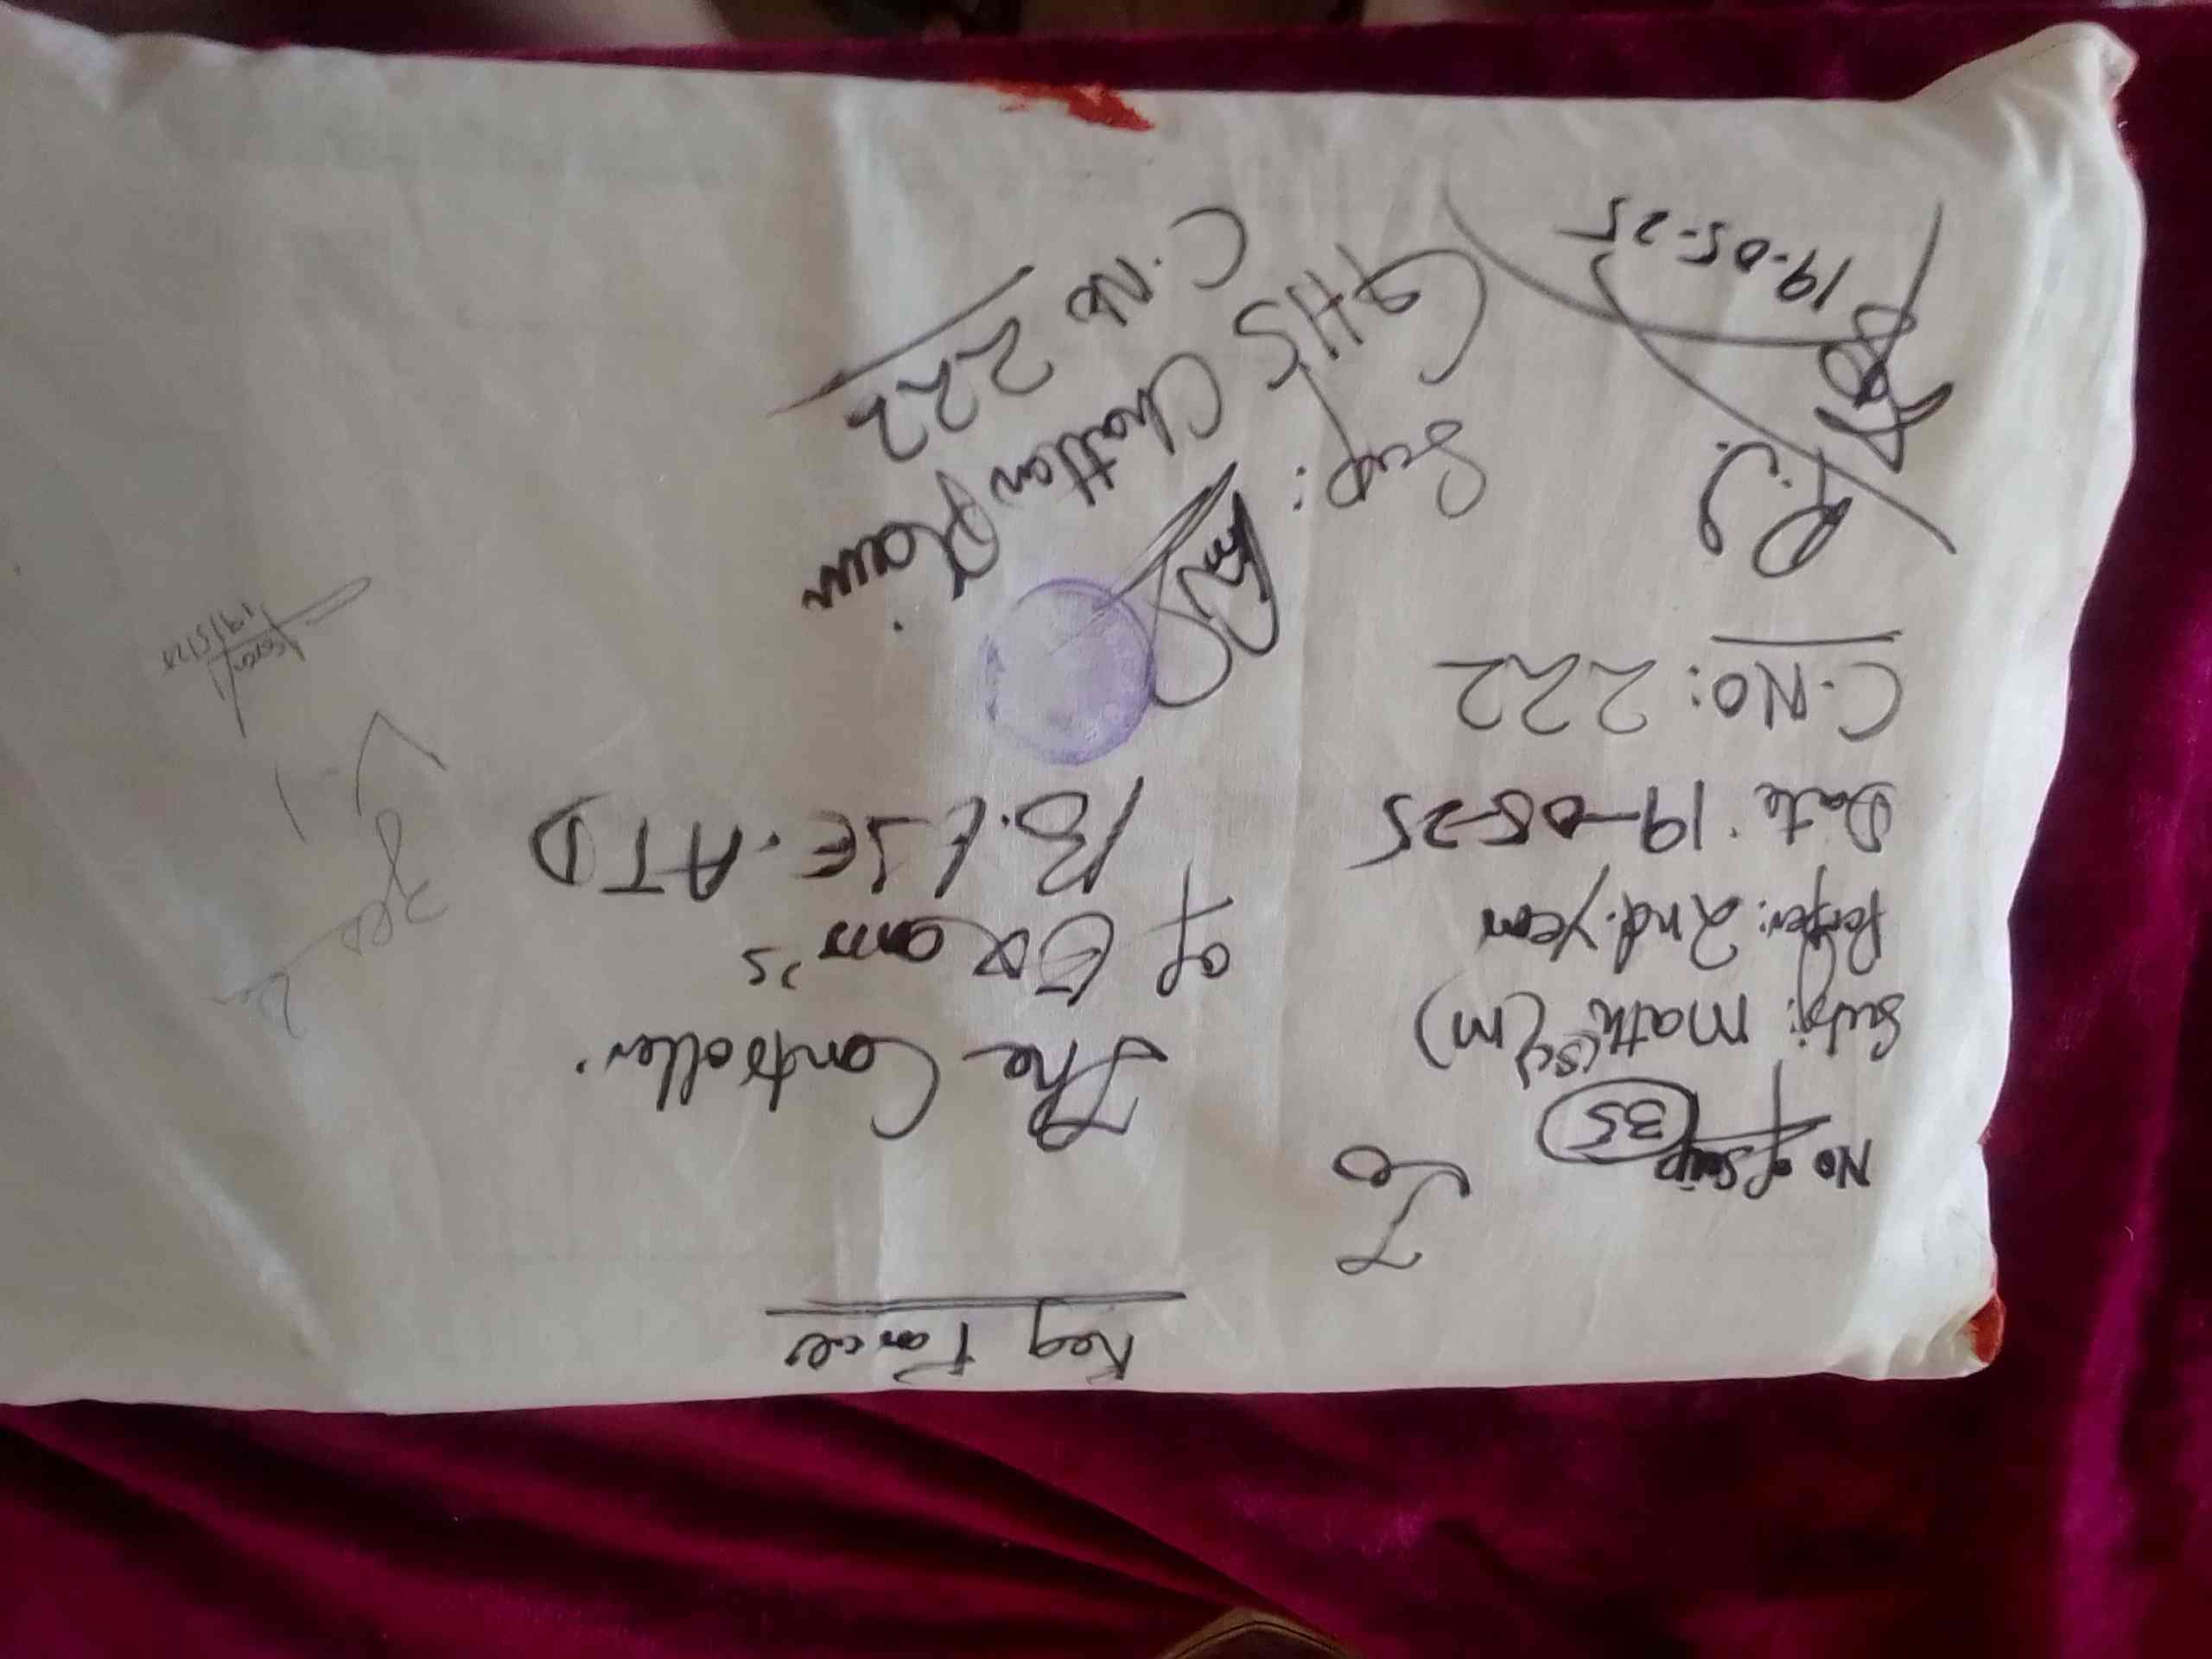 Reg Parcel
No of Scrip 35
Subj: Math (Sc) (M)
Paper: 2nd. year
Date: 19-05-25
C.No: 222
R.I
19-05-25
To
The Controller.
of Exam's
B.I.S.E. ATD
Sup:
GHS Chattar Plain
C.No 222
19/5/25